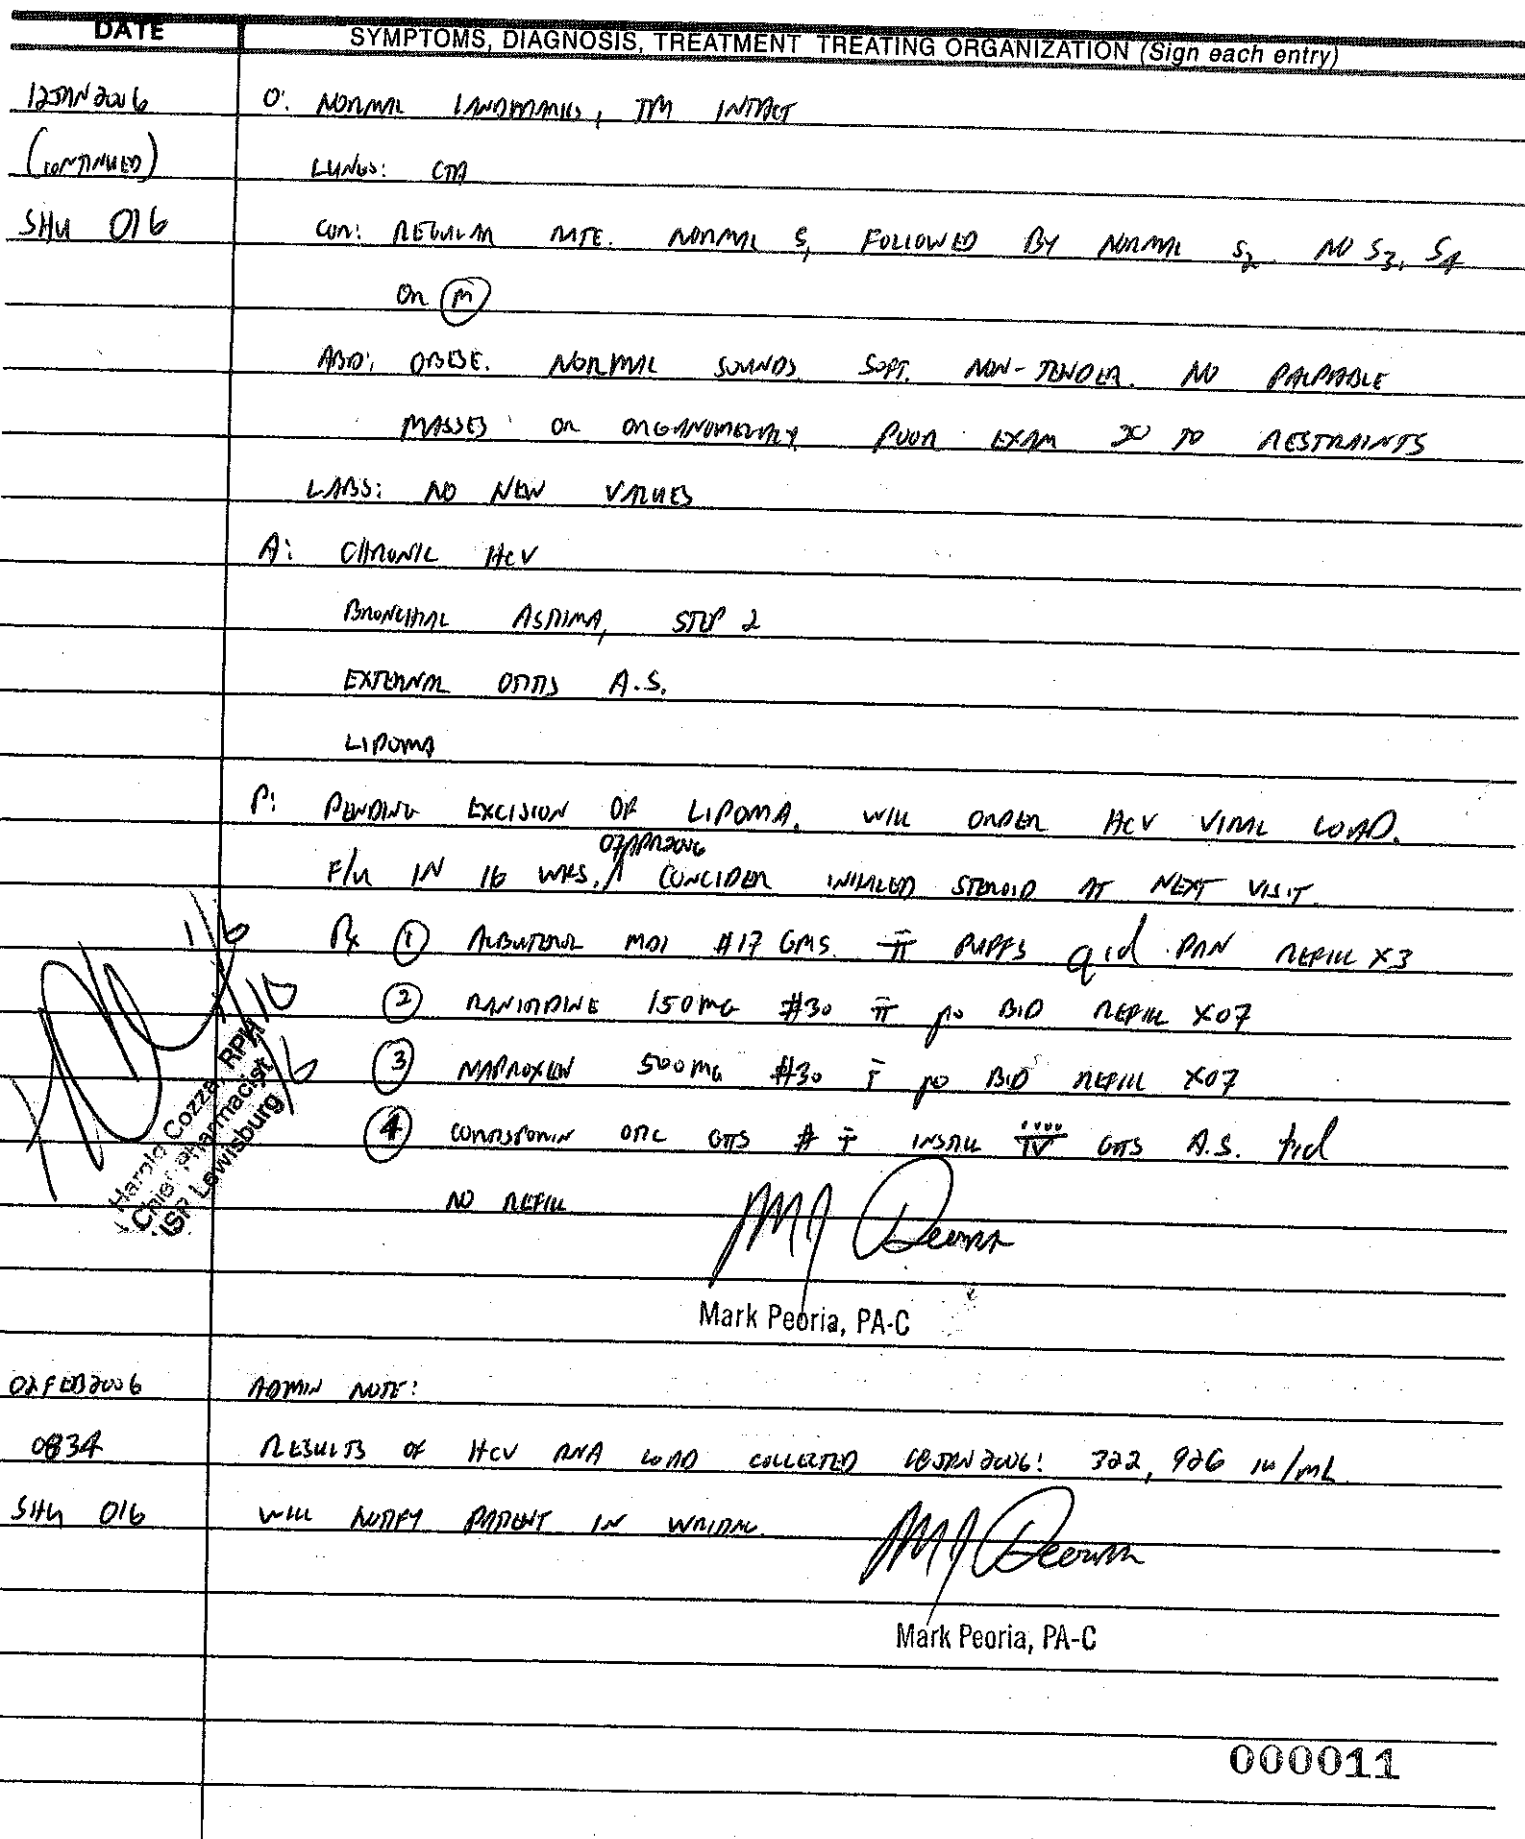 DATE SYMPTOMS, DIAGNOSIS, TREATMENT TREATING ORGANIZATION (Sign each entry)
12JAN2006 O: NORMAL LANDMARKS, TM INTACT
(CONTINUED) LUNGS: CTA
SHU 016 COR: REGULAR RATE. NORMAL S1 FOLLOWED BY NORMAL S2. NO S3, S4
OR (M)
ABD: OBESE. NORMAL SOUNDS SOFT. NON-TENDER. NO PALPABLE
MASSES OR ORGANOMEGALY POOR EXAM 2° TO RESTRAINTS
LABS: NO NEW VALUES
A: CHRONIC HCV
BRONCHIAL ASTHMA, STEP 2
EXTERNAL OTITIS A.S.
LIPOMA
P: PENDING EXCISION OF LIPOMA. WILL ORDER HCV VIRAL LOAD.
07APR2006
F/U IN 16 WKS. ^ CONCIDER INHALED STEROID AT NEXT VISIT.
Rx (1) ALBUTEROL MDI #17 GMS. ii PUFFS qid PRN REFILL X3
(2) RANITIDINE 150MG #30 ii po BID REFILL X07
(3) NAPROXEN 500MG #30 i po BID REFILL X07
(4) CORTISPORIN OTIC GTTS # i INSTILL IV GTTS A.S. tid
NO REFILL
Harold Cozza, RPH
Chief Pharmacist
USP Lewisburg
Mark Peoria, PA-C
02FEB2006 ADMIN NOTE:
0834 RESULTS OF HCV RNA LOAD COLLECTED 18JAN2006: 322,926 IU/mL
SHU 016 WILL NOTIFY PATIENT IN WRITING.
Mark Peoria, PA-C
000011